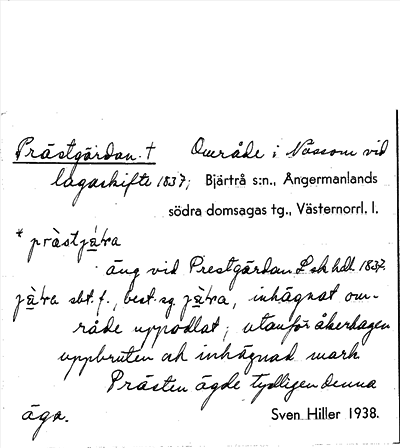 Prästgärdan. † Område i Nässom vid
lagaskifte 1837; Bjärtrå s:n., Ångermanlands
södra domsagas tg., Västernorrl. l.
* prästjära
äng vid Prestgärdan L sk hdl. 1837.
sbt. f., best. sg. inhägnat om-
råde uppodlat; utanför åkerhagen
uppbruten och inhägnad mark
Prästen ägde tydligen denna
äga. Sven Hiller 1938.